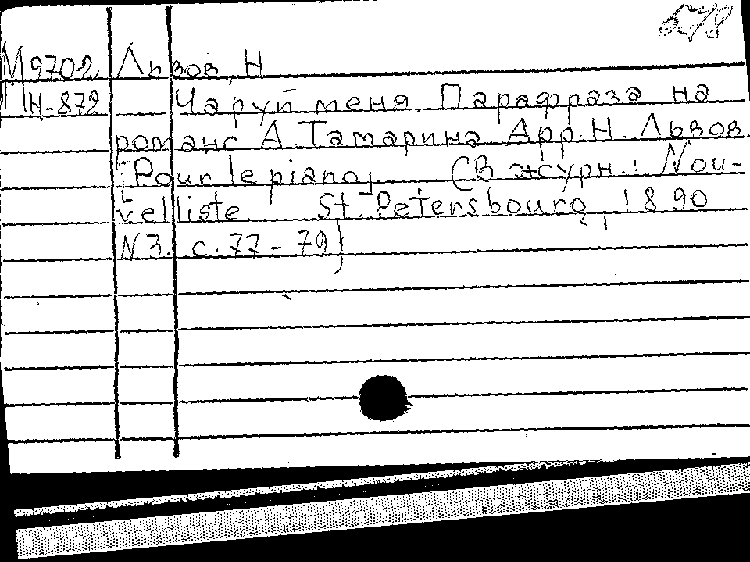 578
М 9702 Львов, Н
Н-872 Чаруй меня. Парафраза на
романс А. Тамарина Арр. Н. Львов.
[Pour le piano]. (В журн.: Nou-
velliste St. Petersbourg, 1890
N3. с. 77-79)